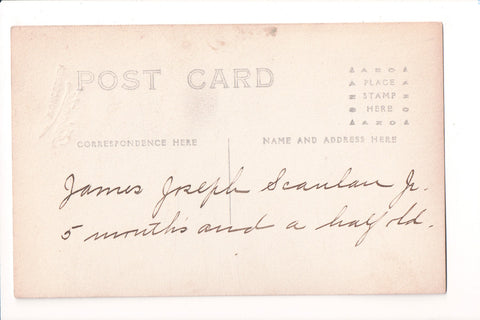 POST CARD
AZO
PLACE
STAMP
HERE
AZO
CORRESPONDENCE HERE
NAME AND ADDRESS HERE
James Joseph Scanlan Jr.
5 month's and a half old.